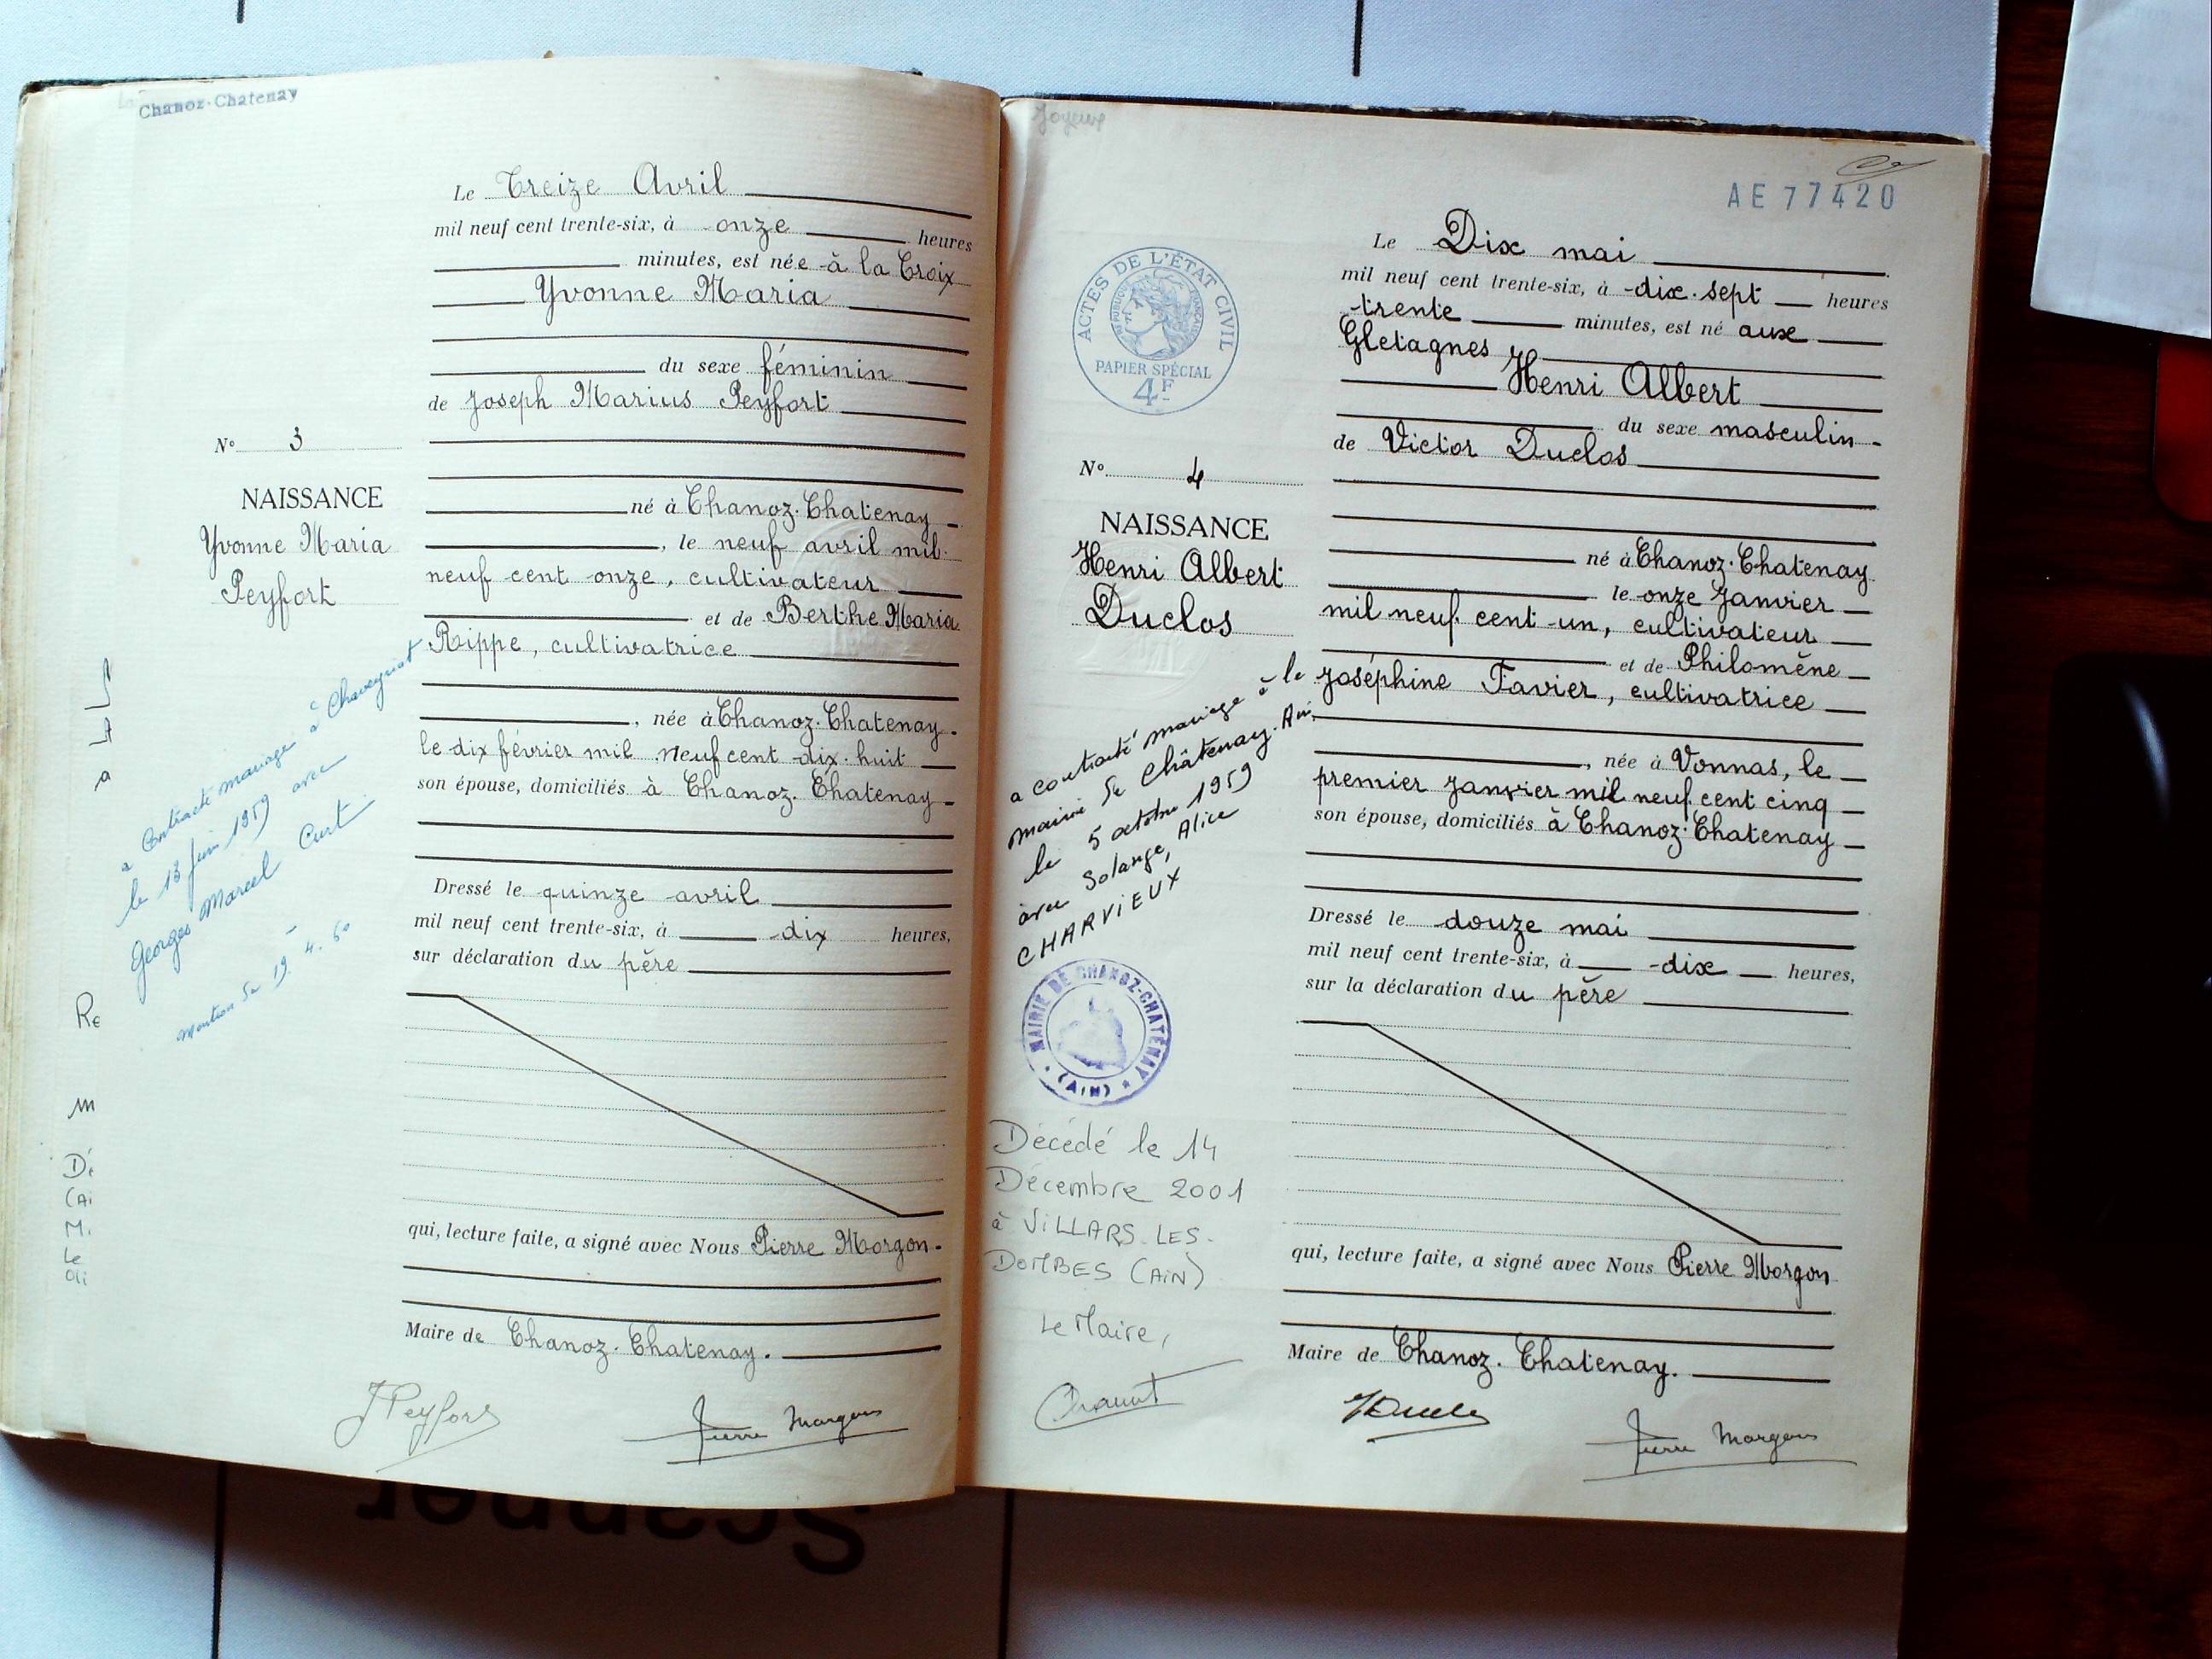 Chanoz-Chatenay
Le Treize Avril
mil neuf cent trente-six, à onze heures
minutes, est née à la Croix
Yvonne Maria
du sexe féminin
de Joseph Marius Peyfort
N° 3
NAISSANCE
Yvonne Maria
Peyfort
né à Chanoz-Chatenay
, le neuf avril mil
neuf cent onze, cultivateur
et de Berthe Maria
Rippe, cultivatrice
, née à Chanoz-Chatenay
le dix février mil neuf cent dix-huit
son épouse, domiciliés à Chanoz-Chatenay
a contracté mariage à Chaveyriat
le 13 juin 1959 avec
Georges Marcel Curt
mention du 19.4.60
Dressé le quinze avril
mil neuf cent trente-six, à dix heures,
sur déclaration du père
qui, lecture faite, a signé avec Nous Pierre Morgon
Maire de Chanoz-Chatenay.
J Peyfort
Pierre Morgon
Re
m
Dé
(Ai
M.
Le
Joyeux
AE 77420
ACTES DE L'ÉTAT CIVIL
RÉPUBLIQUE FRANÇAISE
PAPIER SPÉCIAL
4F
Le Dix mai
mil neuf cent trente-six, à dix-sept heures
trente minutes, est né aux
Gletagnes
Henri Albert
du sexe masculin
de Victor Duclos
N° 4
NAISSANCE
Henri Albert
Duclos
né à Chanoz-Chatenay
le onze Janvier
mil neuf cent un, cultivateur
et de Philomène
Joséphine Favier, cultivatrice
, née à Vonnas, le
premier Janvier mil neuf cent cinq
son épouse, domiciliés à Chanoz-Chatenay
a contracté mariage à la
mairie de Châtenay. Ain
le 5 octobre 1959
avec Solange, Alice
CHARVIEUX
MAIRIE DE CHANOZ-CHATENAY
(AIN)
Décédé le 14
Décembre 2001
à VILLARS-LES-
DOMBES (AIN)
Le Maire,
Dressé le douze mai
mil neuf cent trente-six, à dix heures,
sur la déclaration du père
qui, lecture faite, a signé avec Nous Pierre Morgon
Maire de Chanoz-Chatenay.
Pierre Morgon
Scanner